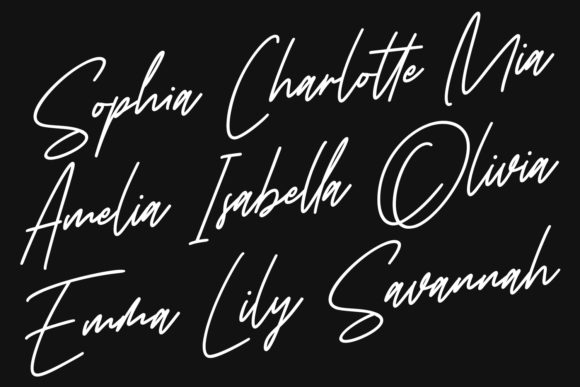 Sophia Charlotte Mia
Amelia Isabella Olivia
Emma Lily Savannah